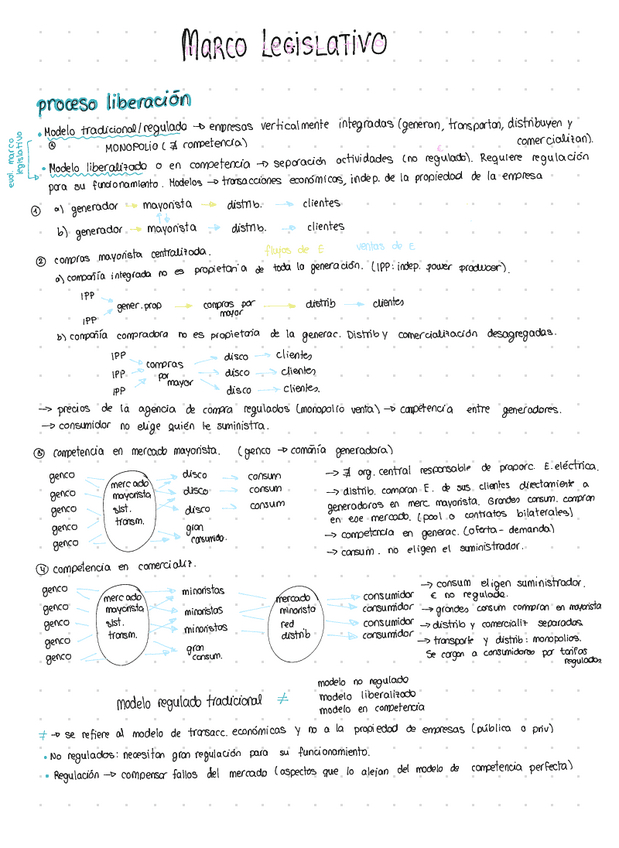 MARCO LEGISLATIVO
proceso liberación
• Modelo tradicional/regulado → empresas verticalmente integradas (generan, transportan, distribuyen y
MONOPOLIO (∄ competencia) comercializan).
evol. marco legislativo
• Modelo liberalizado o en competencia → separación actividades (no regulado). Requiere regulación
para su funcionamiento. Modelos → transacciones económicas, indep. de la propiedad de la empresa
① a) generador → mayorista → distrib. → clientes
b) generador → mayorista → distrib. → clientes
② compras mayorista centralizada. flujos de E ventas de E
a) compañía integrada no es propietaria de toda la generación. (IPP: indep. power producer).
IPP
gener. prop → compras por mayor → distrib → clientes
IPP
b) compañía compradora no es propietaria de la generac. Distrib y comercialización desagregadas.
IPP disco → clientes
IPP compras por mayor disco → clientes
IPP disco → clientes.
→ precios de la agencia de compra regulados (monopolio venta) → competencia entre generadores.
→ consumidor no elige quién le suministra.
③ competencia en mercado mayorista. (genco → comañía generadora)
genco
genco
genco
genco
genco
mercado
mayorista
sist.
transm.
disco consum
disco consum
disco consum
gran
consumido.
→ ∄ org. central responsable de proporc. E. eléctrica.
→ distrib. compran E. de sus. clientes directamente a
generadoras en merc. mayorista. Grandes consum. compran
en ese mercado. (pool o contratos bilaterales)
→ competencia en generac. (oferta - demanda)
→ consum. no eligen el suministrador.
④ competencia en comercializ.
genco
genco
genco
genco
genco
mercado
mayorista
sist.
transm.
minoristas
minoristas
minoristas
gran
consum.
mercado
minorista
red
distrib
consumidor
consumidor
consumidor
consumidor
→ consum eligen suministrador.
€ no regulado.
→ grandes consum compran en mayorista
→ distrib y comercializ separadas
→ transporte y distrib: monopolios.
Se cargan a consumidores por tarifas
reguladas
modelo no regulado
Modelo regulado tradicional ≠ modelo liberalizado
modelo en competencia
≠ → se refiere al modelo de transacc. económicas y no a la propiedad de empresas (pública o priv)
• No regulados: necesitan gran regulación para su funcionamiento.
• Regulación → compensar fallos del mercado (aspectos que lo alejan del modelo de competencia perfecta)